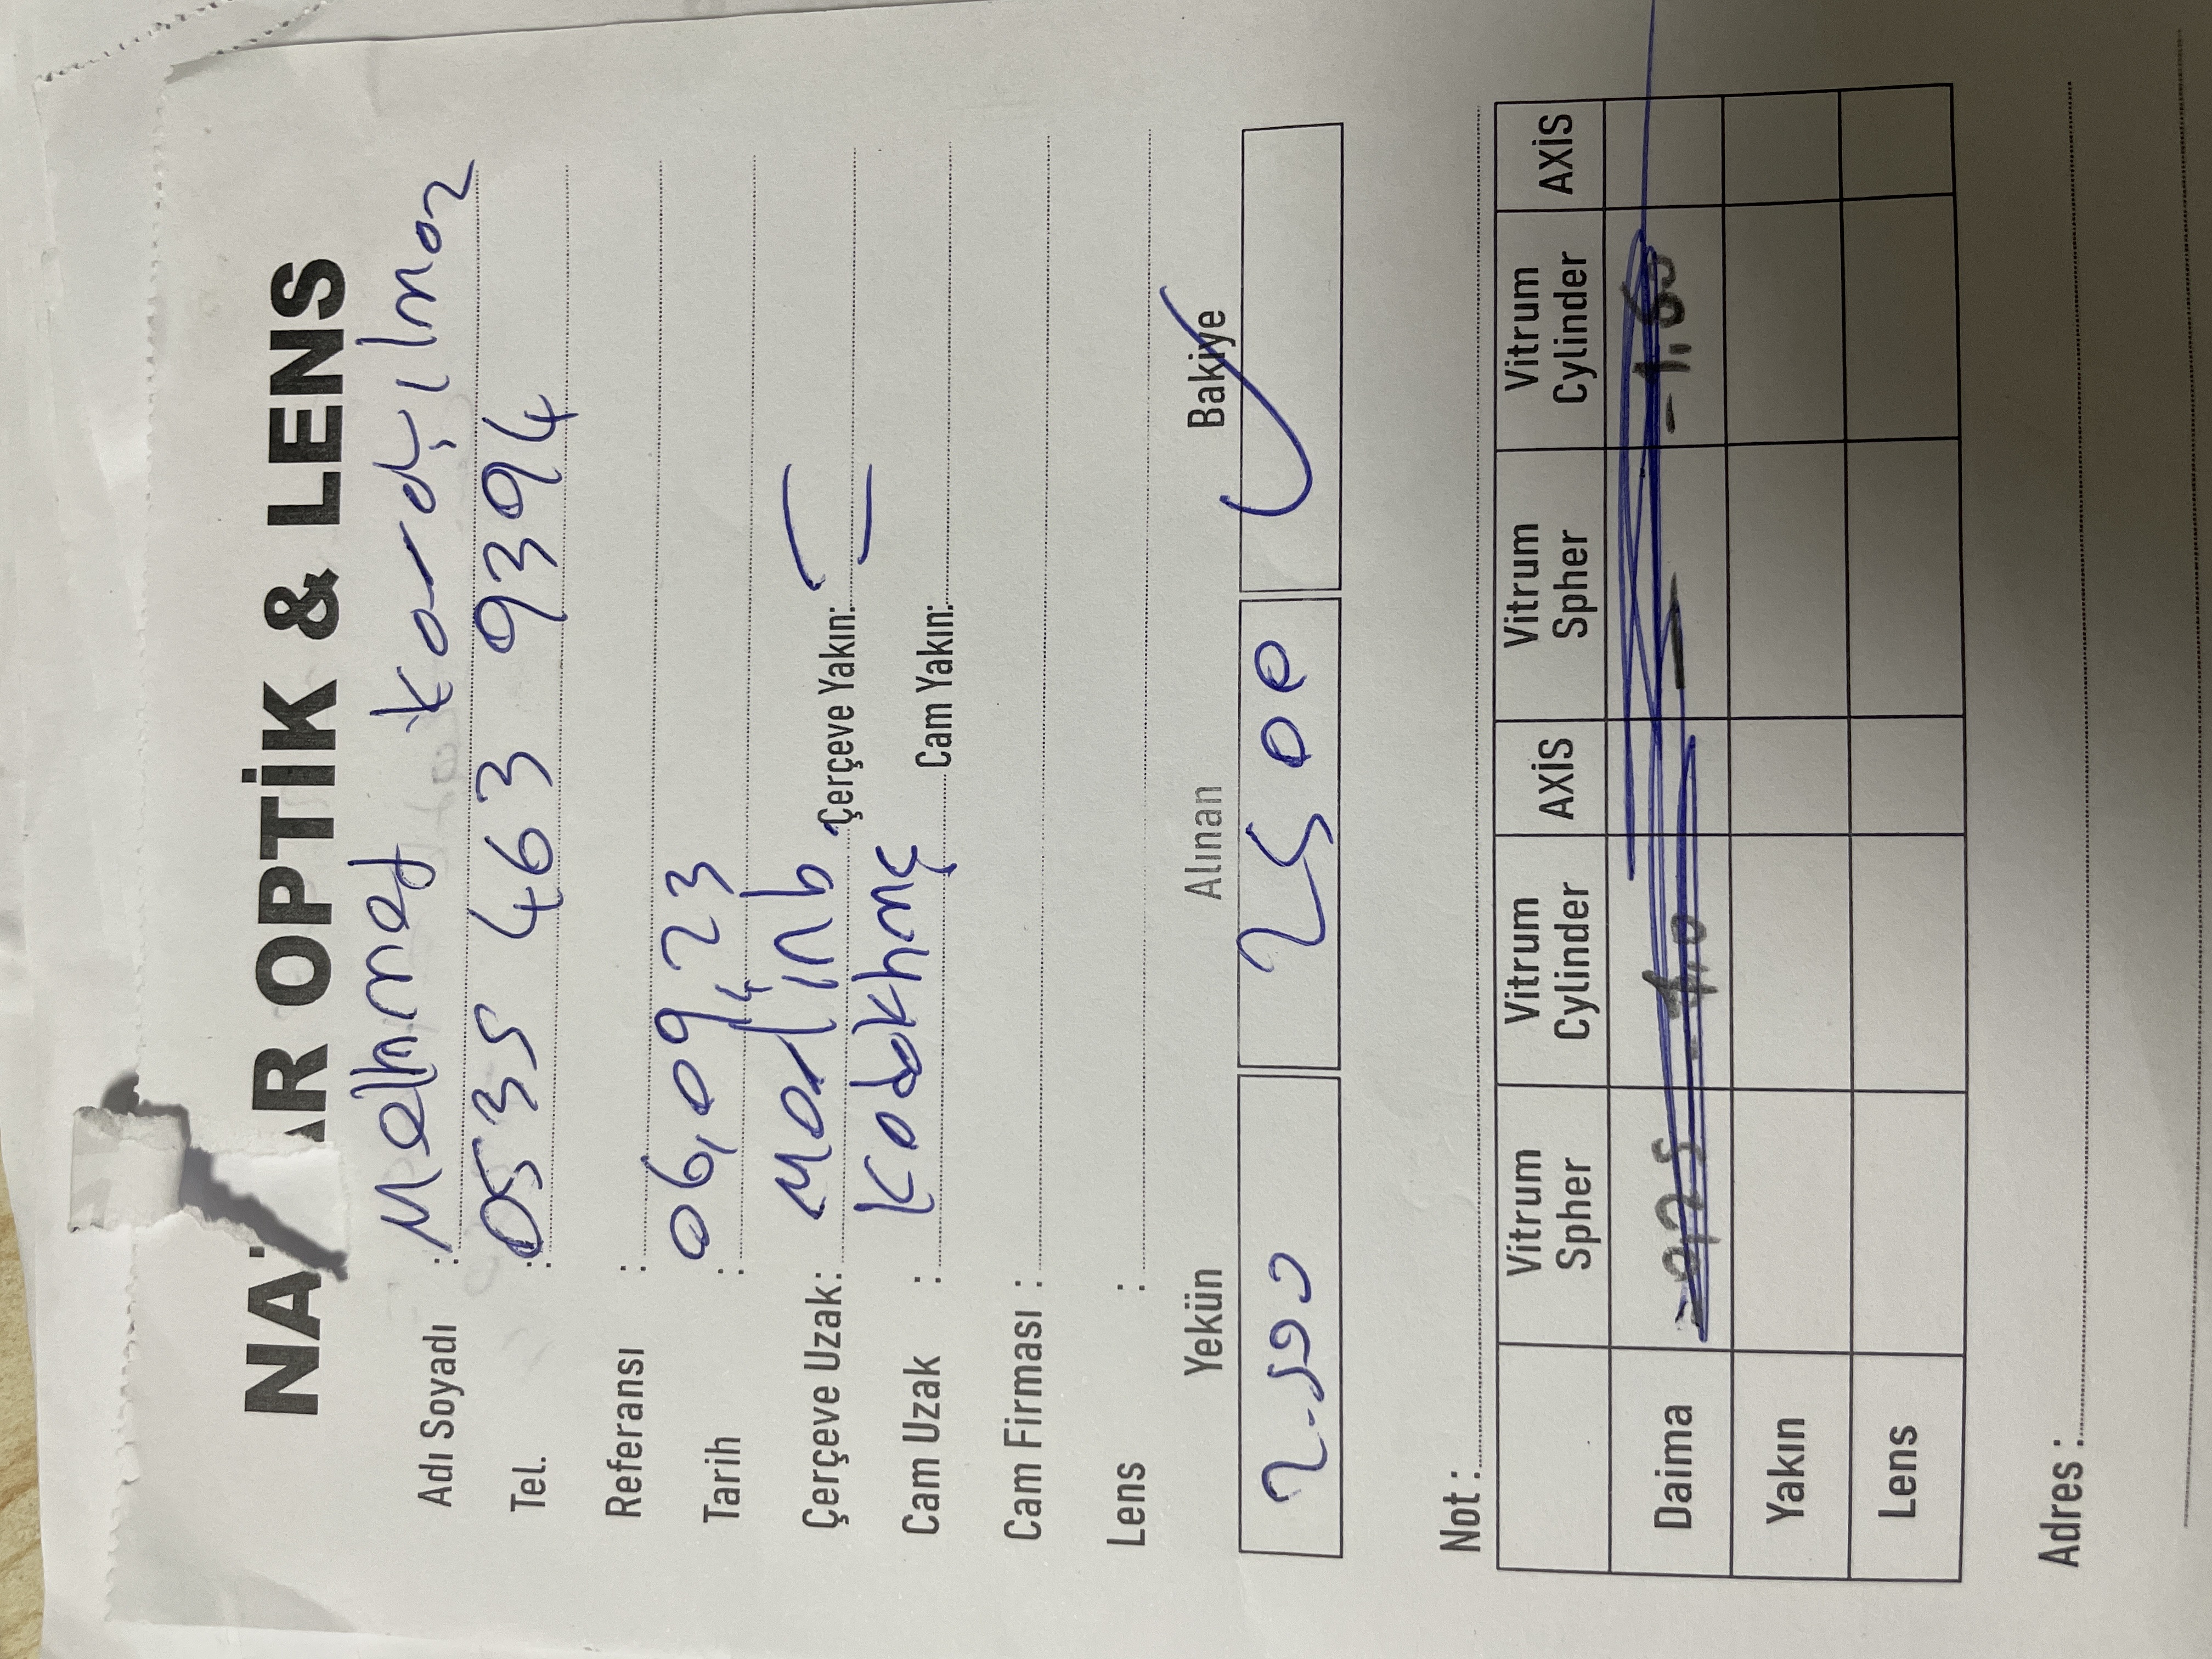 NAZAR OPTİK & LENS
Adı Soyadı : Mehmet
Tel. : 0535 463 9394
Referansı :
Tarih : 06,09,23
Çerçeve Uzak: Çerçeve Yakın:
Cam Uzak : Cam Yakın:
Cam Firması :
Lens :
Yekün Alınan Bakiye
2.500 2500
Not :
Vitrum Spher Vitrum Cylinder AXİS Vitrum Spher Vitrum Cylinder AXİS
Daima -0,25 -1,50
Yakın
Lens
Adres :